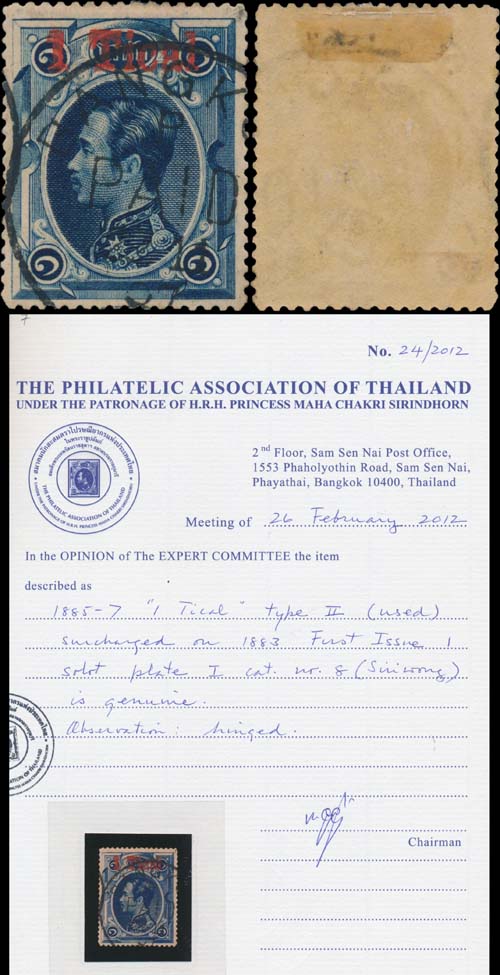 1 Tical
BANGKOK
PAID
๑
๑
๑
๑
No. 24/2012
THE PHILATELIC ASSOCIATION OF THAILAND
UNDER THE PATRONAGE OF H.R.H. PRINCESS MAHA CHAKRI SIRINDHORN
THE PHILATELIC ASSOCIATION OF THAILAND
2nd Floor, Sam Sen Nai Post Office,
1553 Phaholyothin Road, Sam Sen Nai,
Phayathai, Bangkok 10400, Thailand
Meeting of 26 February 2012
In the OPINION of The EXPERT COMMITTEE the item
described as
1885-7 "1 Tical" type II (used)
surcharged on 1883 First Issue 1
solot plate I cat. nr. 8 (Siriwong)
is genuine.
Observation: hinged.
Chairman
1 Tical